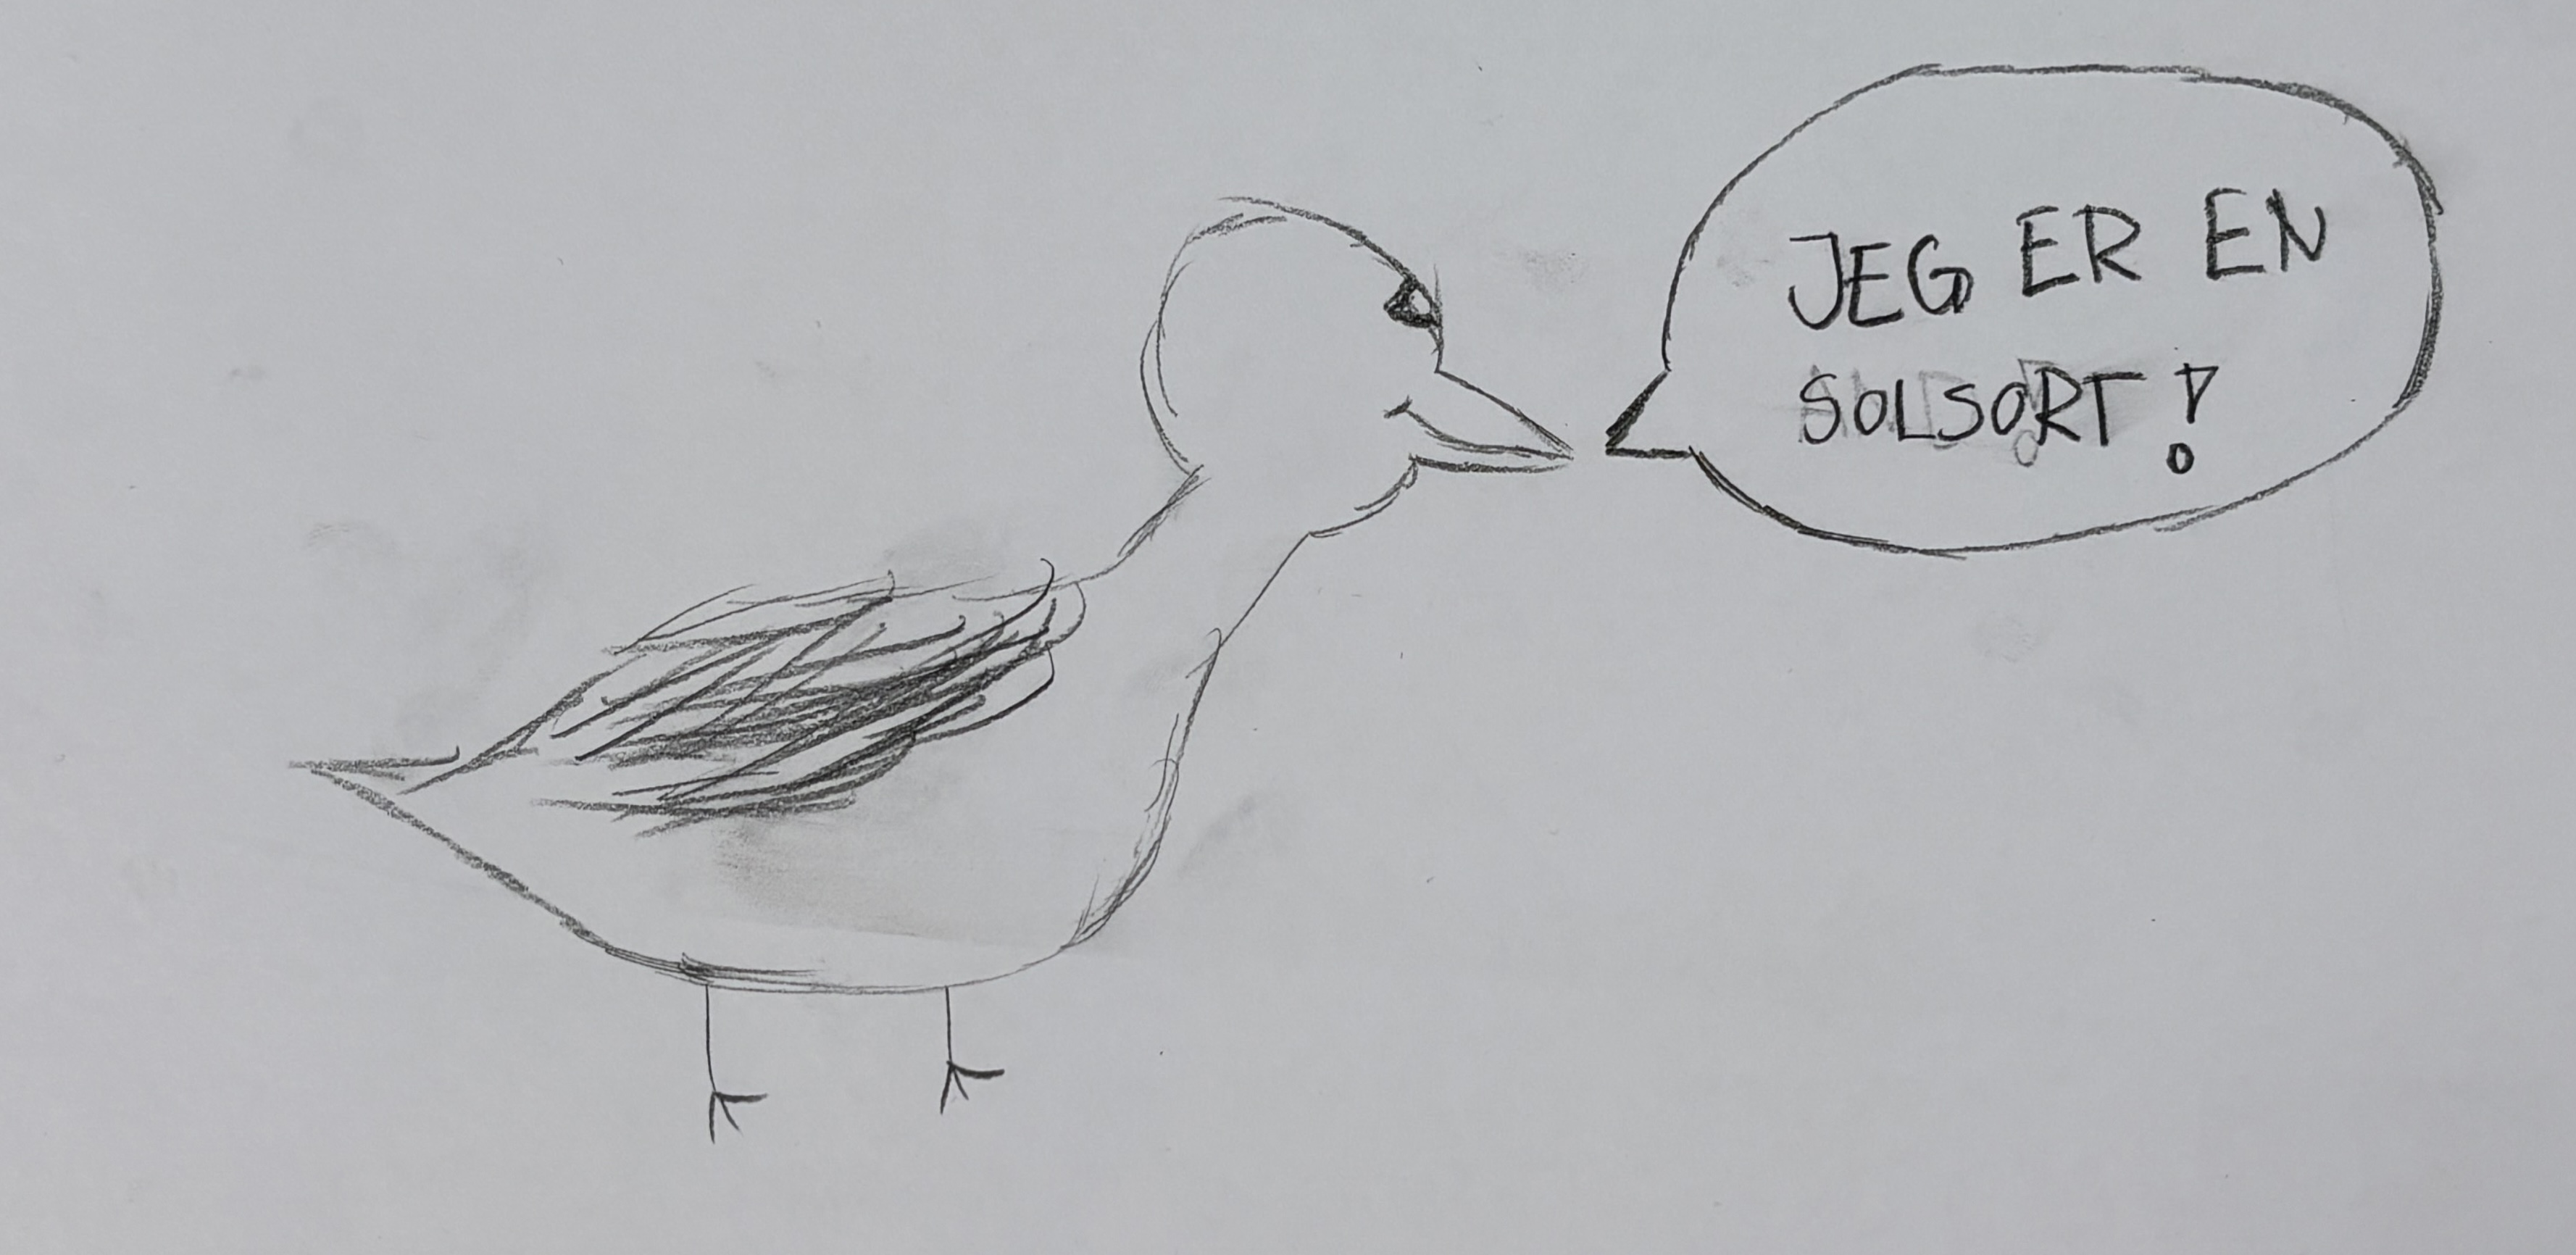 JEG ER EN
SOLSORT!